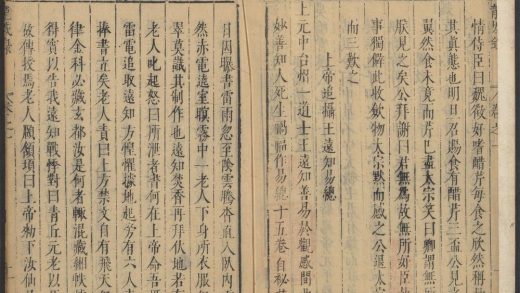 情侍臣曰魏徵好嗜醋芹每食之欣然稱
其真態也明日召賜食有醋芹三盃公見
翼然食未竟而芹已盡太宗笑曰卿謂無
朕見之矣公拜謝曰君無為故無所好臣
事獨僻此收斂物太宗默而感之公退太
而三歎之
上帝追攝王遠知易總
上元中台州一道士王遠知善易於觀感間
妙善知人死生禍福作易總十五卷自秘其
日因曝書雷雨忽至陰雲騰沓直入臥內
然赤電遶室暝霧中一老人下身所衣服
翠莫識其制作也遠知焚香再拜伏地若
老人叱起怒曰所泄者書何在上帝命吾
雷電追取遠知方惶懼據地起旁有六人
捧書立矣老人責曰上方禁文自有飛天
律金科必藏玄都汝是何者輒混藏緗帙
得實以告我遠知戰悸對曰青丘元老以
故傳授焉老人頤頷頃曰上帝勅下汝仙